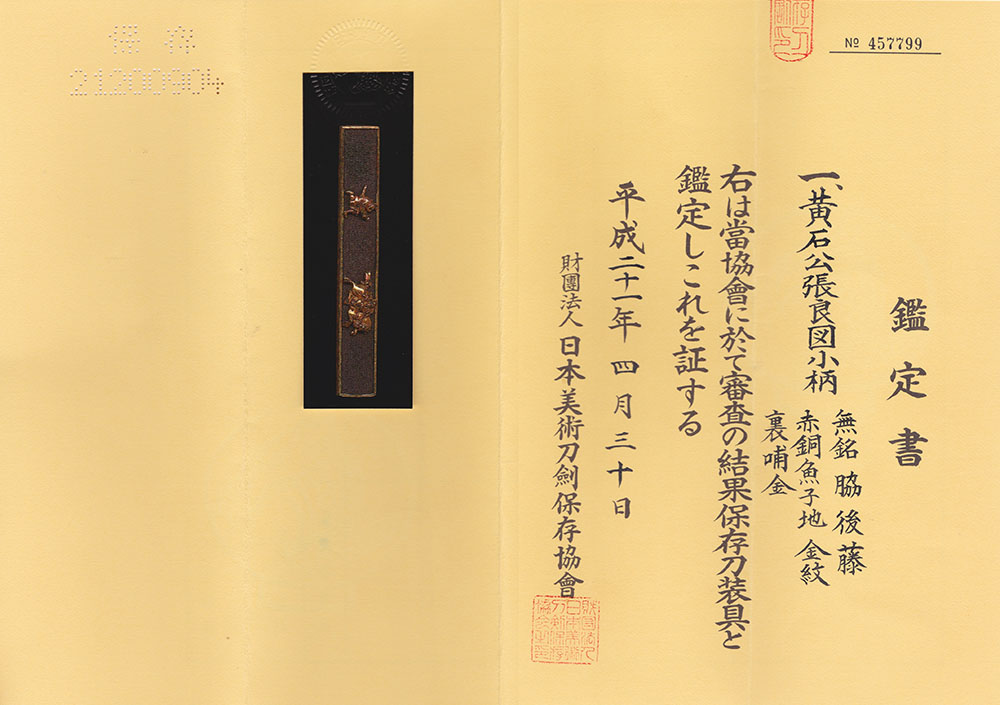 № 457799
鑑定書
一、黄石公張良図小柄
無銘 脇後藤
赤銅魚子地 金紋
裏哺金
右は當協會に於て審査の結果保存刀装具と
鑑定しこれを証する
平成二十一年 四月三十日
財團法人 日本美術刀劍保存協會
保存
21200904